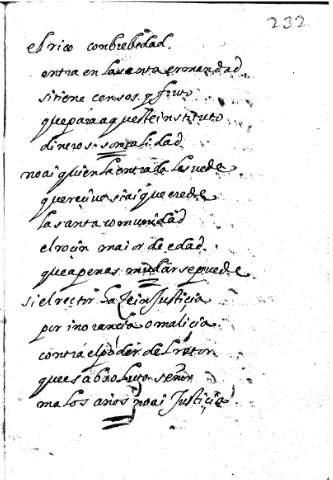 232
el rico con brebedad
entra en la santa ermandad
si tiene censos y fruto
que para aqueste instituto
dineros son calidad
no ai quien la entrada le vede
que recive si ai que erede
la santa comunidad
el rocin maior de edad
que apenas mudar se puede
si el rector haze injusticia
por inorancia o malicia
contra el poder del retor
que es absoluto señor
malos años no ai Justiçia